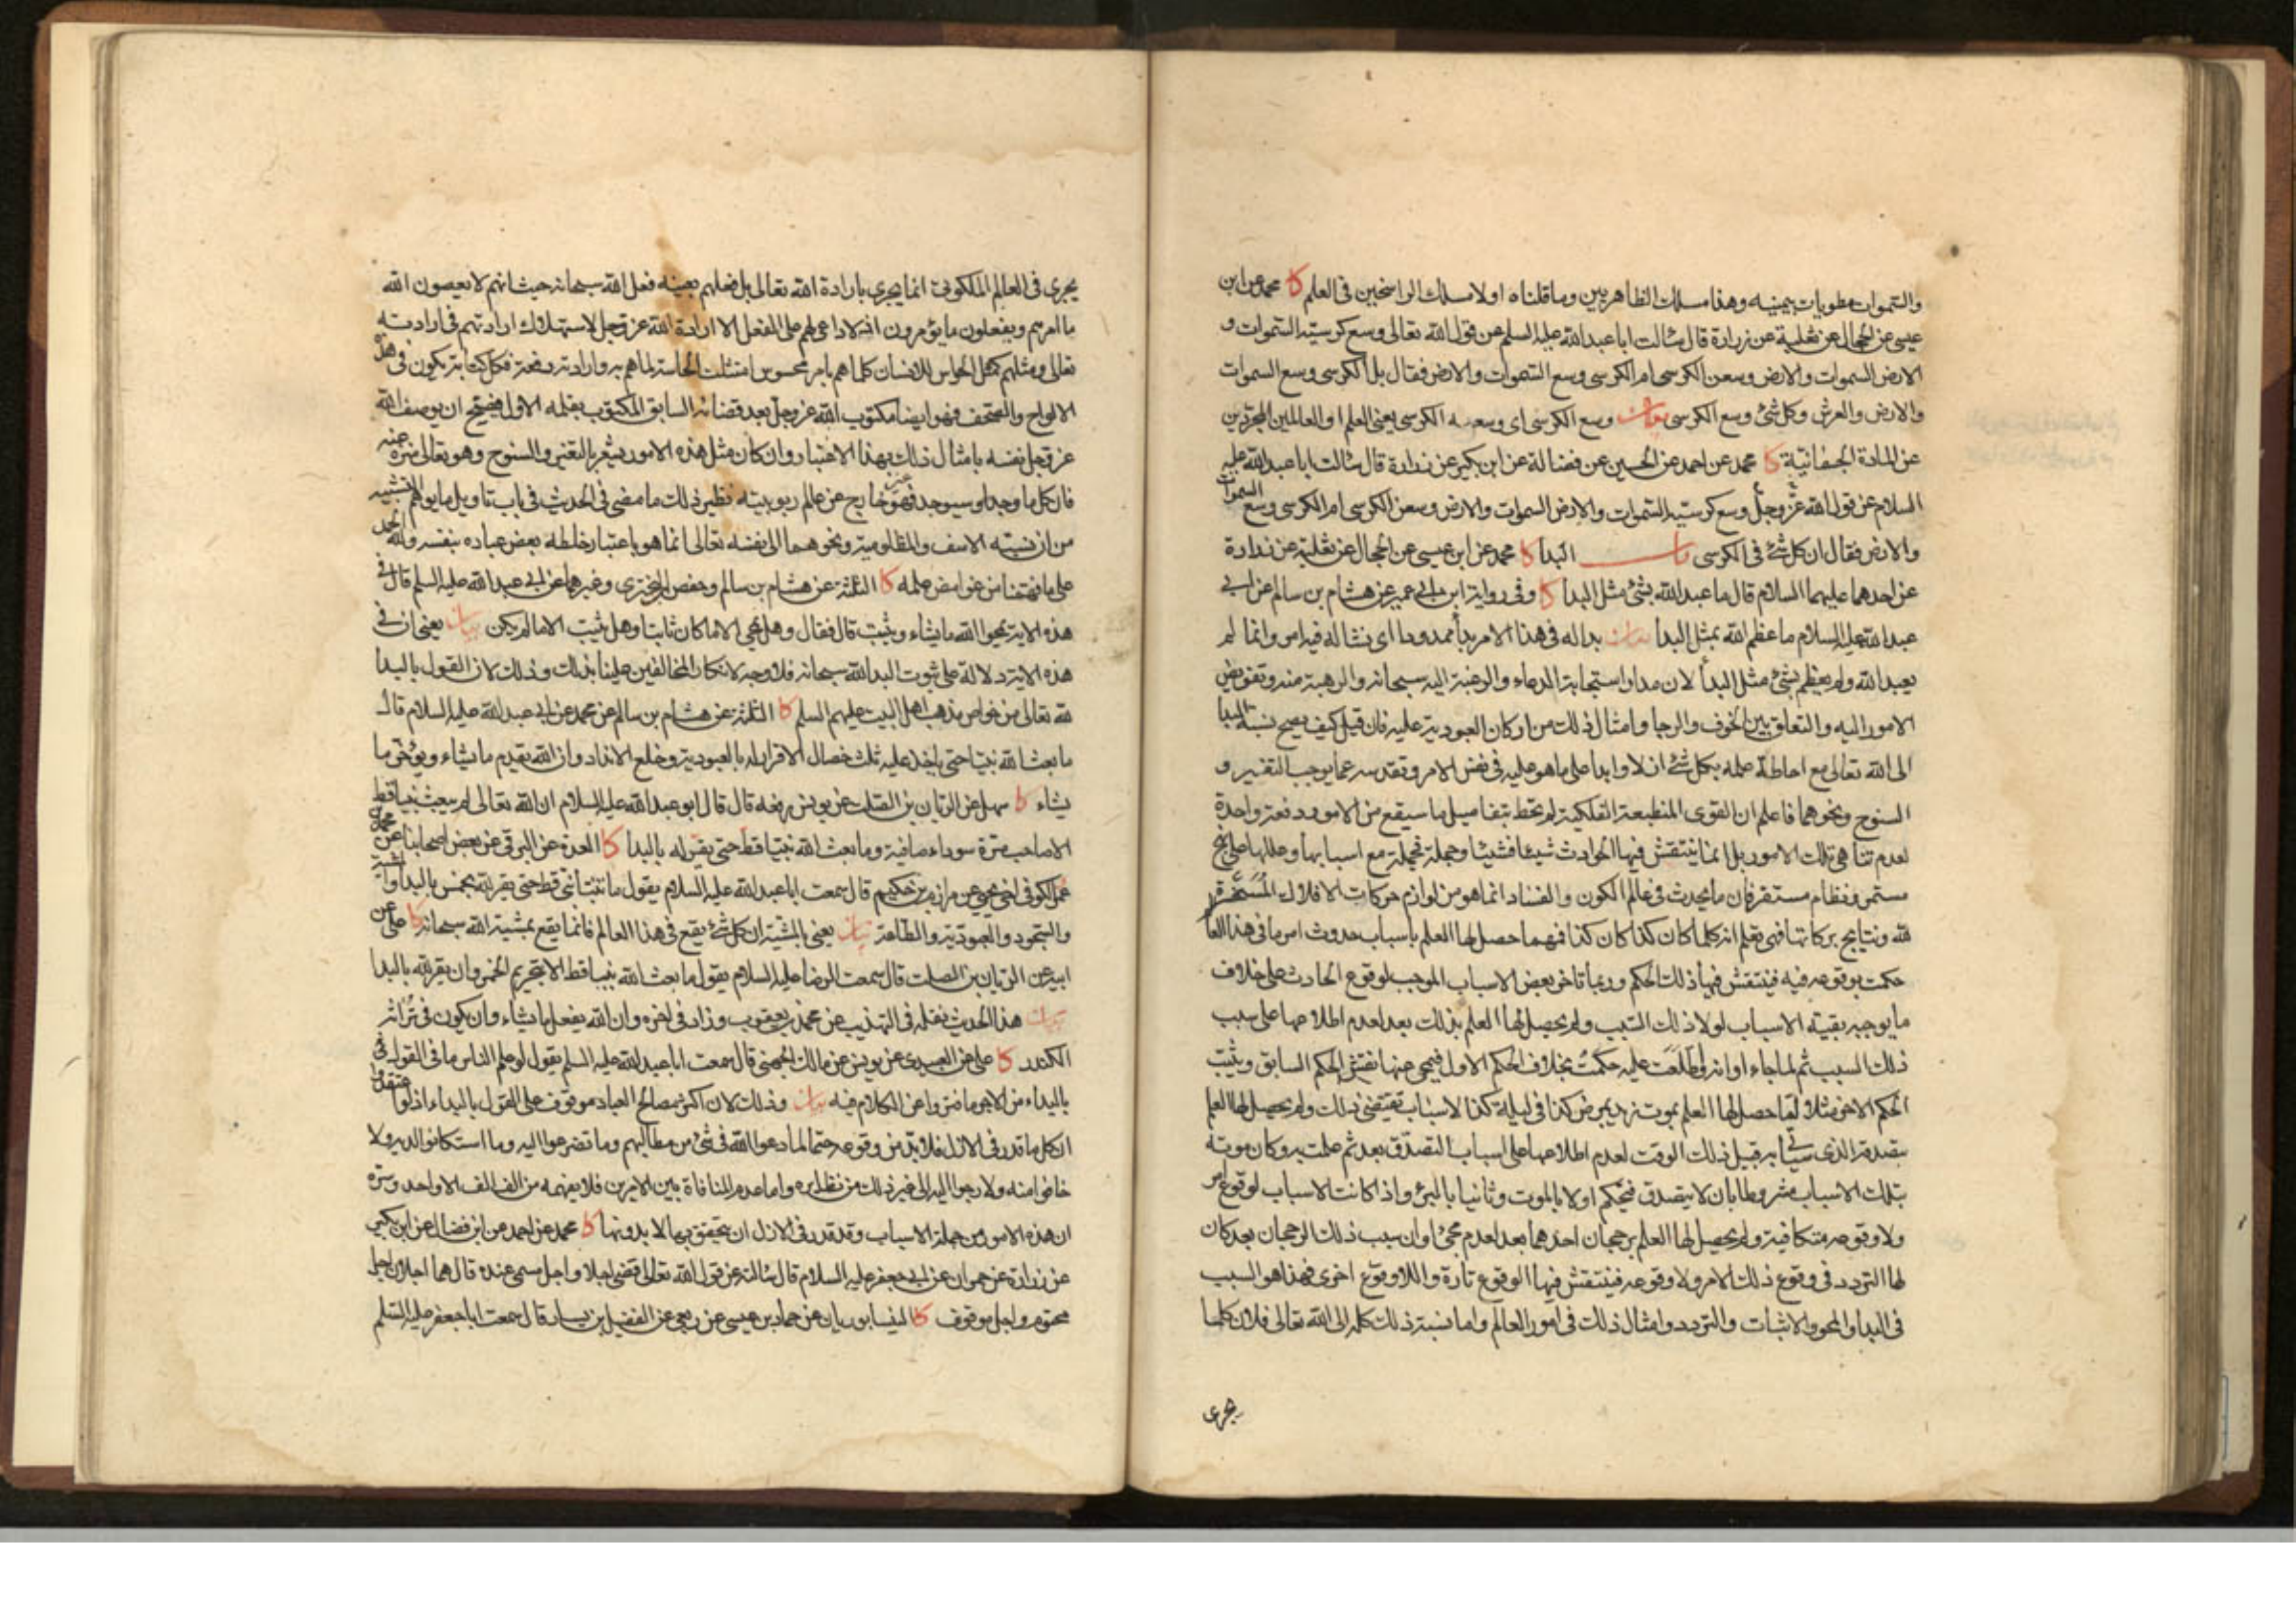 والسموات مطويات بيمينه وهذا مسلك الظاهريين وما قلناه اولا مسلك الراسخين فى العلم كا محمد عن ابن
عيسى عن الحجال عن ثعلبة عن زرارة قال سالت ابا عبدالله عليه السلم عن قول الله تعالى وسع كرسيه السموات و
الارض السموات والارض وسعن الكرسى ام الكرسى وسع السموات والارض فقال بل الكرسى وسع السموات
والارض والعرش وكل شئ وسع الكرسى بيان وسع الكرسى اى وسعه الكرسى يعنى العلم او العالمين المجردين
عن المادة الجسمانية كا محمد عن احمد عن الحسين عن فضالة عن ابن بكير عن زرارة قال سالت ابا عبدالله عليه
السلام عن قول الله عز وجل وسع كرسيه السموات والارض السموات والارض وسعن الكرسى ام الكرسى وسع السموات
والارض فقال ان كل شئ فى الكرسى باب البدا كا محمد عن ابن عيسى عن الحجال عن ثعلبة عن زرارة
عن احدهما عليهما السلام قال ما عبد الله بشئ مثل البدا كا وفى رواية ابن ابى عمير عن هشام بن سالم عن ابى
عبد الله عليه السلام ما عظم الله بمثل البدا بيان بدا له فى هذا الامر بدأ ممدودا اى نشا له فيه امر وانما لم
يعبد الله ولم يعظم بشئ مثل البدأ لان مدار استجابة الدعاء والرغبة اليه سبحانه والرهبة منه وتفويض
الامور اليه والتعلق بين الخوف والرجا وامثال ذلك من اركان العبودية عليه فان قيل كيف يصح نسبة البدا
الى الله تعالى مع احاطة علمه بكل شئ ازلا وابدا على ما هو عليه فى نفس الامر وتقدسه عما يوجب التغير و
السنوح ونحوهما فاعلم ان القوى المنطبعة الفلكية لم تحط بتفاصيل ما سيقع من الامور دفعة واحدة
لعدم تناهى تلك الامور بل انما ينتقش فيها الحوادث شيئا فشيئا وجملة فجملة مع اسبابها وعللها على نهج
مستمر ونظام مستقر فان ما يحدث فى عالم الكون والفساد انما هو من لوازم حركات الافلاك المسخرة
لله ونتايج بركاتها فهى تعلم انه كلما كان كذا كان كذا فمهما حصل لها العلم باسباب حدوث امر ما فى هذا العالم
حكمت بوقوعه فيه فينتقش فيها ذلك الحكم وربما تاخر بعض الاسباب الموجب لوقوع الحادث على خلاف
ما يوجبه بقية الاسباب لولا ذلك السبب ولم يحصل لها العلم بذلك بعد لعدم اطلاعها على سبب
ذلك السبب ثم لما جاء اوانه واطلعت عليه حكمت بخلاف الحكم الاول فيمحى عنها نقش الحكم السابق ويثبت
الحكم الاخر مثلا لما حصل لها العلم بموت زيد بمرض كذا فى ليلة كذا لاسباب تقتضى ذلك ولم يحصل لها العلم
بتصدقه الذى سياتى به قبيل ذلك الوقت لعدم اطلاعها على اسباب التصدق بعد ثم علمت به وكان موته
بتلك الاسباب مشروطا بان لا يتصدق فتحكم اولا بالموت وثانيا بالبرئ واذا كانت الاسباب لوقوع امر
ولا وقوعه متكافية ولم يحصل لها العلم برجحان احدهما بعد لعدم مجئ اوان سبب ذلك الرجحان بعد كان
لها التردد فى وقوع ذلك الامر ولا وقوعه فينتقش فيها الوقوع تارة واللاوقوع اخرى فهذا هو السبب
فى البدا والمحو والاثبات والتردد وامثال ذلك فى امور العالم واما نسبة ذلك كله الى الله تعالى فلان كلما
يجرى
يجرى فى العالم الملكوتى انما يجرى بارادة الله تعالى بل فعلهم بعينه فعل الله سبحانه حيث انهم لا يعصون الله
ما امرهم ويفعلون ما يؤمرون اذ لا داعى لهم على الفعل الا ارادة الله عز وجل لاستهلاك ارادتهم فى ارادته
تعالى ومثلهم كمثل الحواس للانسان كلما هم بامر محسوس امتثلت الحاسة لما هم به وارادته دفعة فكل كتابة تكون فى هذه
الالواح والصحف فهو ايضا مكتوب الله عز وجل بعد قضائه السابق المكتوب بقلمه الاول فيصح ان يوصف الله
عز وجل نفسه بامثال ذلك بهذا الاعتبار وان كان مثل هذه الامور يشعر بالتغير والسنوح وهو تعالى منزه عنه
فان كل ما وجد او سيوجد فهو غير خارج عن عالم ربوبيته نظير ذلك ما مضى فى الحديث فى باب تاويل ما يوهم التشبيه
من ان نسبته الاسف والمظلومية ونحوهما الى نفسه تعالى انما هو باعتبار خلطه بعض عباده بنفسه ولله الحمد
على ما فهمنا من غوامض علمه كا الثلثة عن هشام بن سالم وحفص البخترى وغيرهما عن ابى عبد الله عليه السلم قال فى
هذه الاية يمحوا الله ما يشاء ويثبت قال فقال وهل يمحى الا ما كان ثابتا وهل يثبت الا ما لم يكن بيان يعنى ان فى
هذه الاية دلالة على ثبوت البدا لله سبحانه فلا وجه لانكار المخالفين علينا بذلك وذلك لان القول بالبدأ
لله تعالى من خواص مذهب اهل البيت عليهم السلم كا الثلثة عن هشام بن سالم عن محمد عن ابى عبد الله عليه السلام قال
ما بعث الله نبيا حتى ياخذ عليه ثلث خصال الاقرار له بالعبودية وخلع الانداد وان الله يقدم ما يشاء ويؤخر ما
يشاء كا سهل عن الريان بن الصلت عن يونس رفعه قال قال ابو عبد الله عليه السلام ان الله تعالى لم يبعث نبيا قط
الا صاحب مرة سوداء صافية وما بعث الله نبيا قط حتى يقر له بالبدا كا العدة عن البرقى عن بعض اصحابنا عن محمد بن
عمر الكوفى اخى يحيى عن مرازم بن حكيم قال سمعت ابا عبد الله عليه السلام يقول ما تنبأ نبى قط حتى يقر لله بخمس بالبدأ والمشية
والسجود والعبودية والطاعة بيان يعنى بالمشية ان كل شئ يقع فى هذا العالم فانما يقع بمشية الله سبحانه كا على عن
ابيه عن الريان بن الصلت قال سمعت الرضا عليه السلام يقول ما بعث الله نبيا قط الا بتحريم الخمر وان يقر لله بالبدا
بيان هذا الحديث نقله فى التهذيب عن محمد بن يعقوب وزاد فى اخره وان الله يفعل ما يشاء وان يكون فى تراثه
الكندر كا على عن العبيدى عن يونس عن مالك الجهنى قال سمعت ابا عبد الله عليه السلم يقول لو علم الناس ما فى القول فى
بالبداء من الاجر ما فتروا عن الكلام فيه بيان وذلك لان اكثر مصالح العباد موقوف على القول بالبداء اذ لو اعتقدوا
ان كل ما قدر فى الازل فلا بد من وقوعه حتما لما دعوا الله فى شئ من مطالبهم وما تضرعوا اليه وما استكانوا لديه ولا
خافوا منه ولا رجوا اليه الى غير ذلك من نظايره واما عدم المنافاة بين الامرين فلا يفهمه من الف الف الا واحد وسره
ان هذه الامور من جملة الاسباب وقد قدر فى الازل ان يتحقق بها لا بدونها كا محمد عن احمد عن ابن فضال عن ابن بكير
عن زرارة عن حمران عن ابى جعفر عليه السلام قال سالته عن قول الله تعالى قضى اجلا واجل مسمى عنده قال هما اجلان اجل
محتوم واجل موقوف كا النيسابوريان عن حماد بن عيسى عن ربعى عن الفضيل بن يسار قال سمعت ابا جعفر عليه السلم